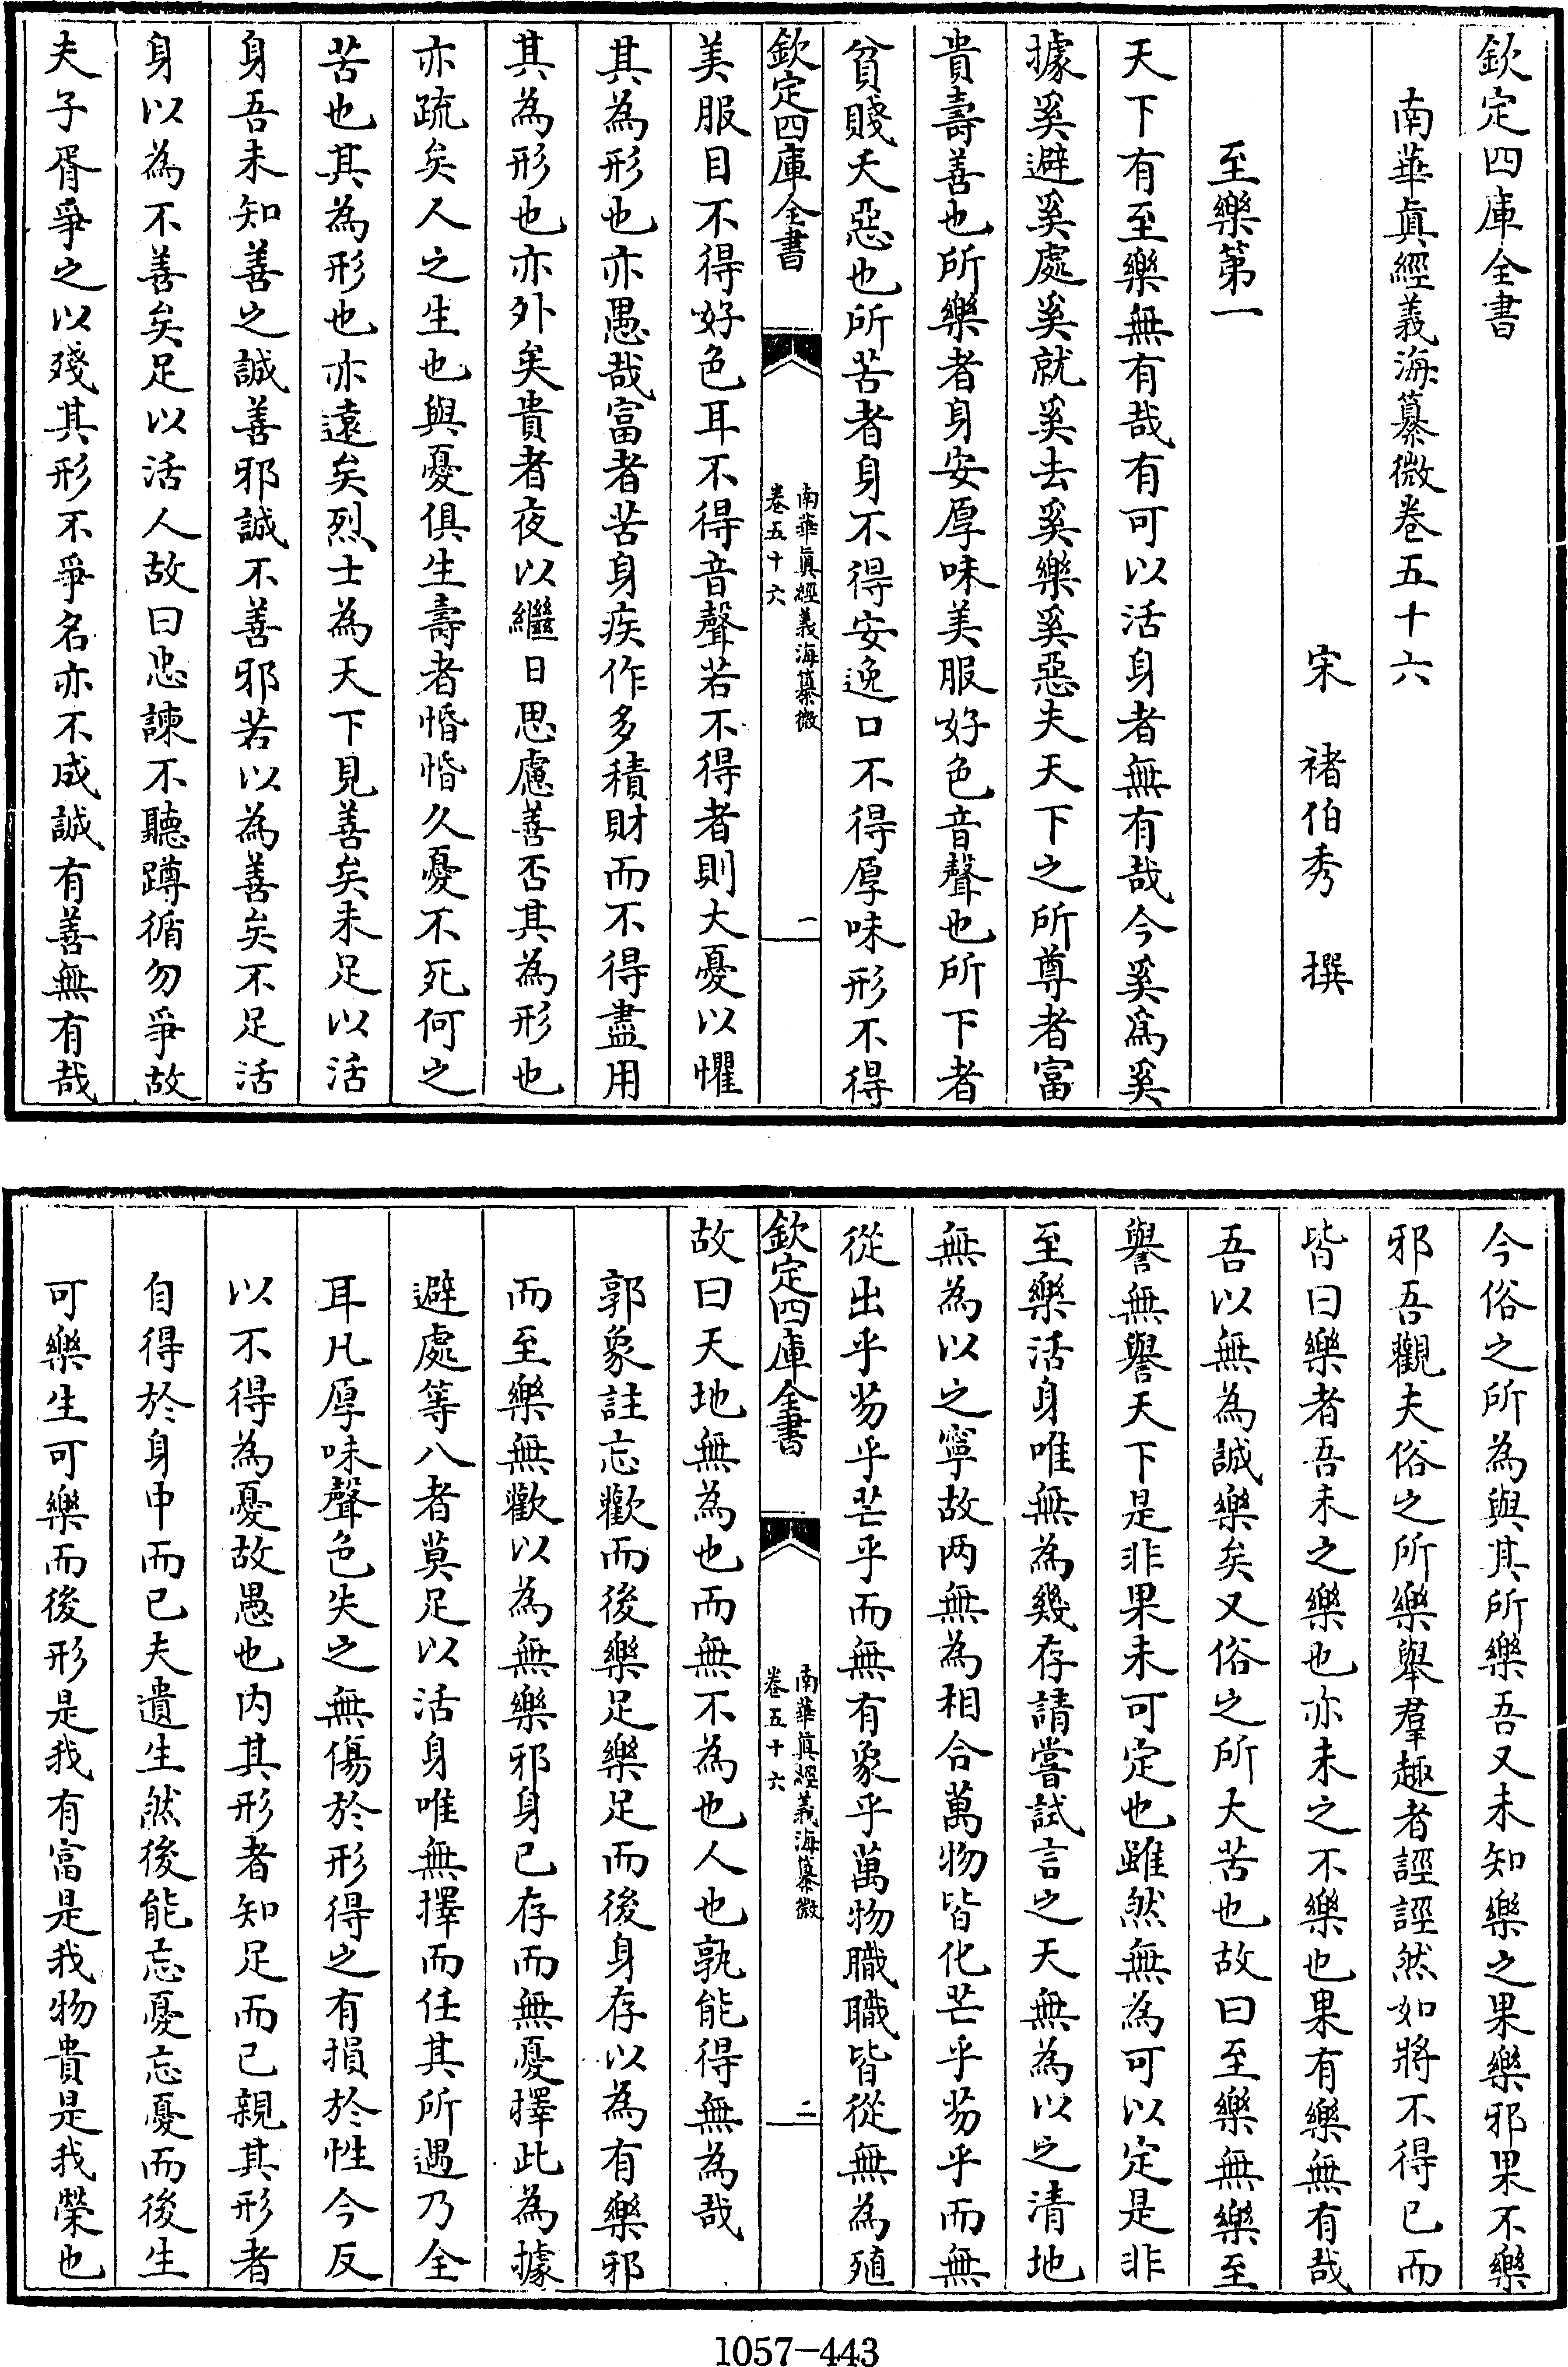 欽定四庫全書
南華真經義海纂微卷五十六
宋 褚伯秀 撰
至樂第一
天下有至樂無有哉有可以活身者無有哉今奚為奚
據奚避奚處奚就奚去奚樂奚惡夫天下之所尊者富
貴壽善也所樂者身安厚味美服好色音聲也所下者
貧賤夭惡也所苦者身不得安逸口不得厚味形不得
欽定四庫全書
南華真經義海纂微
卷五十六
一
美服目不得好色耳不得音聲若不得者則大憂以懼
其為形也亦愚哉富者苦身疾作多積財而不得盡用
其為形也亦外矣貴者夜以繼日思慮善否其為形也
亦疏矣人之生也與憂俱生壽者惛惛久憂不死何之
苦也其為形也亦遠矣烈士為天下見善矣未足以活
身吾未知善之誠善邪誠不善邪若以為善矣不足活
身以為不善矣足以活人故曰忠諫不聽蹲循勿爭故
夫子胥爭之以殘其形不爭名亦不成誠有善無有哉
今俗之所為與其所樂吾又未知樂之果樂邪果不樂
邪吾觀夫俗之所樂舉羣趣者誙誙然如將不得已而
皆曰樂者吾未之樂也亦未之不樂也果有樂無有哉
吾以無為誠樂矣又俗之所大苦也故曰至樂無樂至
譽無譽天下是非果未可定也雖然無為可以定是非
至樂活身唯無為幾存請嘗試言之天無為以之清地
無為以之寧故两無為相合萬物皆化芒乎芴乎而無
從出乎芴乎芒乎而無有象乎萬物職職皆從無為殖
欽定四庫全書
南華真經義海纂微
卷五十六
二
故曰天地無為也而無不為也人也孰能得無為哉
郭象註忘歡而後樂足樂足而後身存以為有樂邪
而至樂無歡以為無樂邪身已存而無憂擇此為據
避處等八者莫足以活身唯無擇而任其所遇乃全
耳凡厚味聲色失之無傷於形得之有損於性今反
以不得為憂故愚也内其形者知足而已親其形者
自得於身中而已夫遺生然後能忘憂忘憂而後生
可樂生可樂而後形是我有富是我物貴是我榮也
1057-443